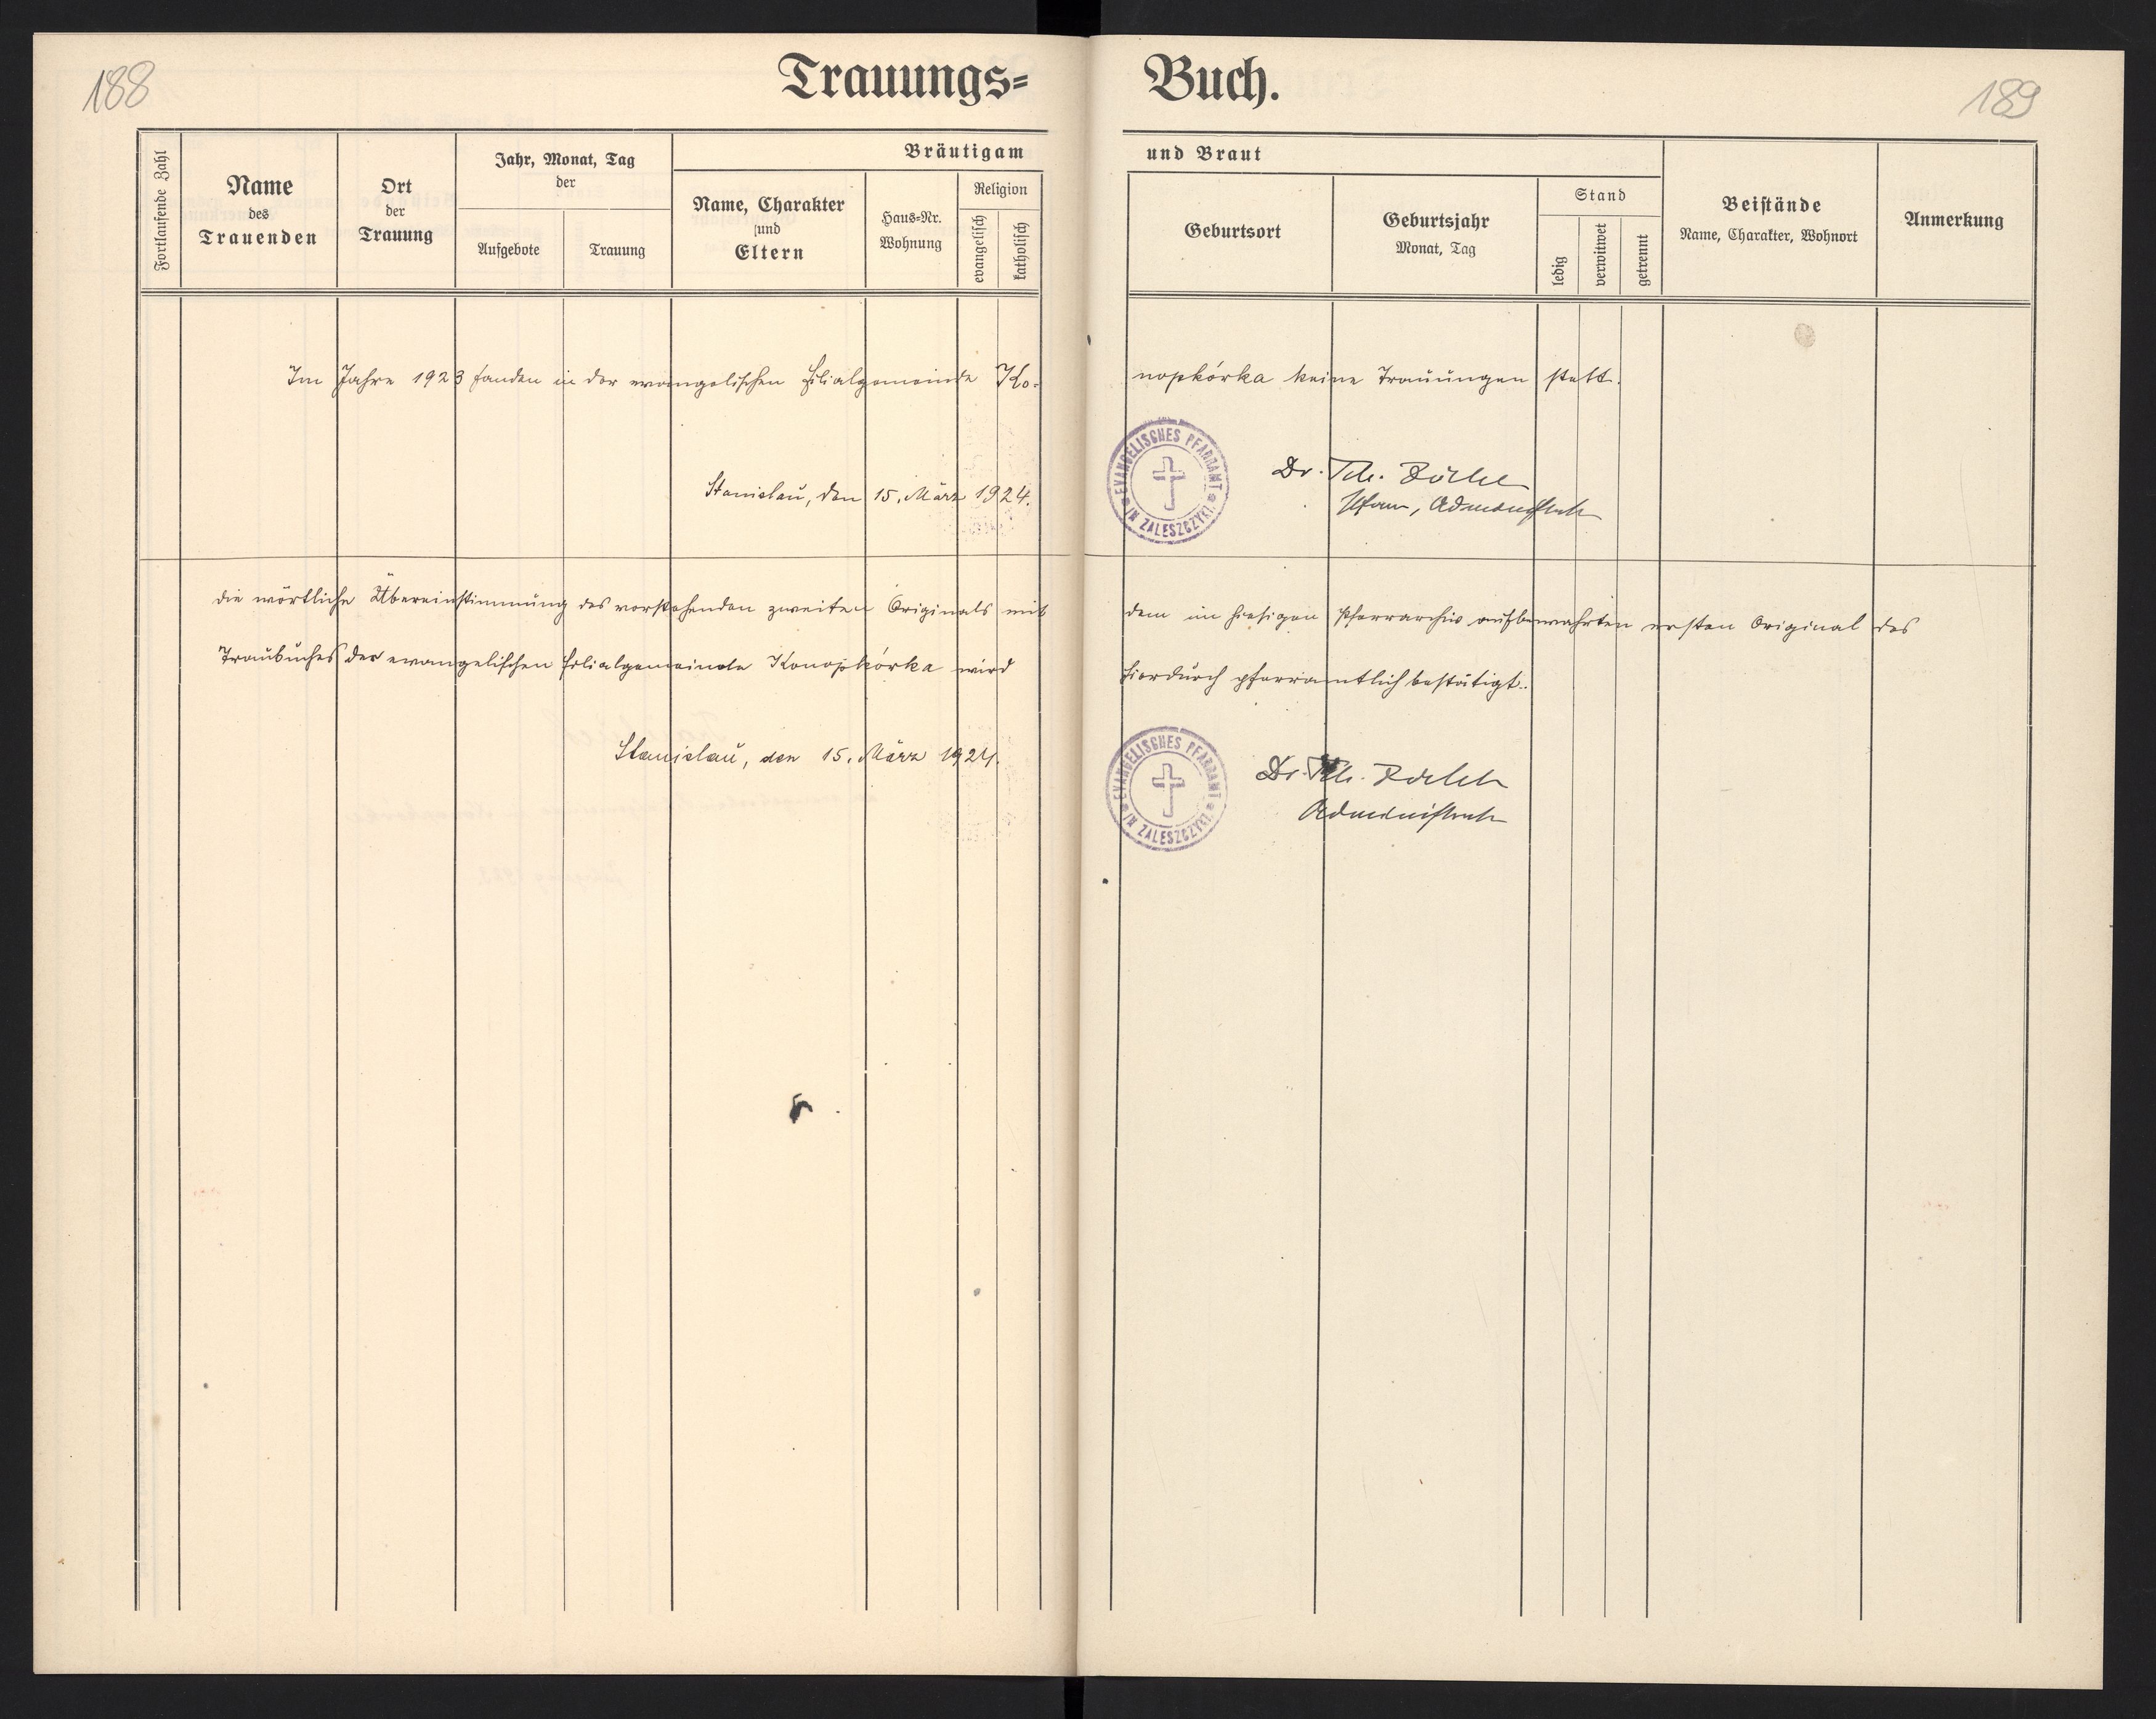 188
Trauungs=
Buch.
189
Fortlaufende Zahl
Name
des
Trauenden
Ort
der
Trauung
Jahr, Monat, Tag
der
Aufgebote
Trauung
Bräutigam
Name, Charakter
und
Eltern
Haus=Nr.
Wohnung
Religion
evangelisch
katholisch
und Braut
Geburtsort
Geburtsjahr
Monat, Tag
Stand
ledig
verwitwet
getrennt
Beistände
Name, Charakter, Wohnort
Anmerkung
Im Jahre 1923 fanden in der evangelischen Filialgemeinde Ko-
nopkórka keine Trauungen statt.
Stanislau, den 15. März 1924.
EVANGELISCHES PFARRAMT
IN ZALESZCZYKI
Dr. Th.
Pfarr, Administrator
die wörtliche Übereinstimmung des vorstehenden zweiten Originals mit
dem im hiesigen Pfarrarchiv aufbewahrten ersten Original des
Traubuches der evangelischen Filialgemeinde Konopkórka wird
hierdurch pfarramtlich bestätigt.
Stanislau, den 15. März 1924.
EVANGELISCHES PFARRAMT
IN ZALESZCZYKI
Dr. Th.
Administrator